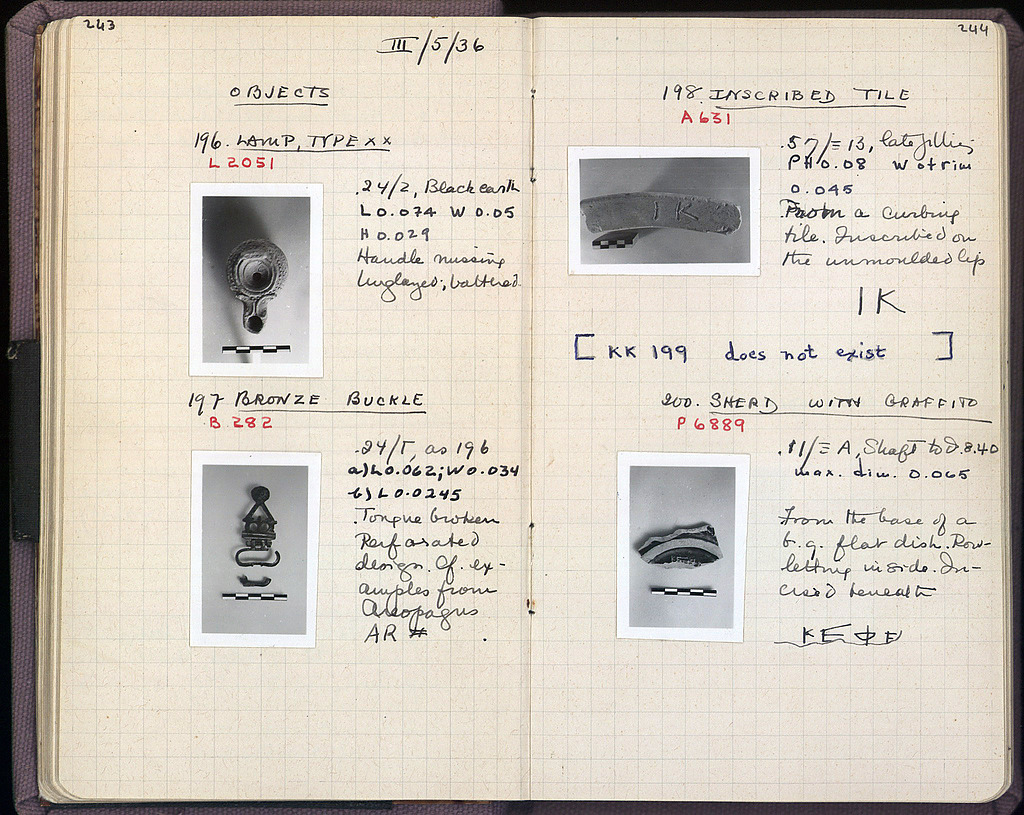 243
III/5/36
OBJECTS
196. LAMP, TYPE XX
L 2051
.24/2, Black earth
L 0.074 W 0.05
H 0.029
Handle missing
Unglazed; battered
197 BRONZE BUCKLE
B 282
.24/Γ, as 196
a) L 0.062; W 0.034
b) L 0.0245
.Tongue broken
Perforated
design. Cf. ex-
amples from
Areopagus
AR #
244
198. INSCRIBED TILE
A 631
.57/Ξ 13, late filling
PH 0.08 W of rim
0.045
From a curbing
tile. Inscribed on
the unmoulded lip
IK
IK
[ KK 199 does not exist ]
200. SHERD WITH GRAFFITO
P 6889
.11/Ξ A, Shaft to D. 8.40
max. dim. 0.065
From the base of a
b.g. flat dish. Row-
letting inside. In-
cised beneath
ΚΕΦΕ